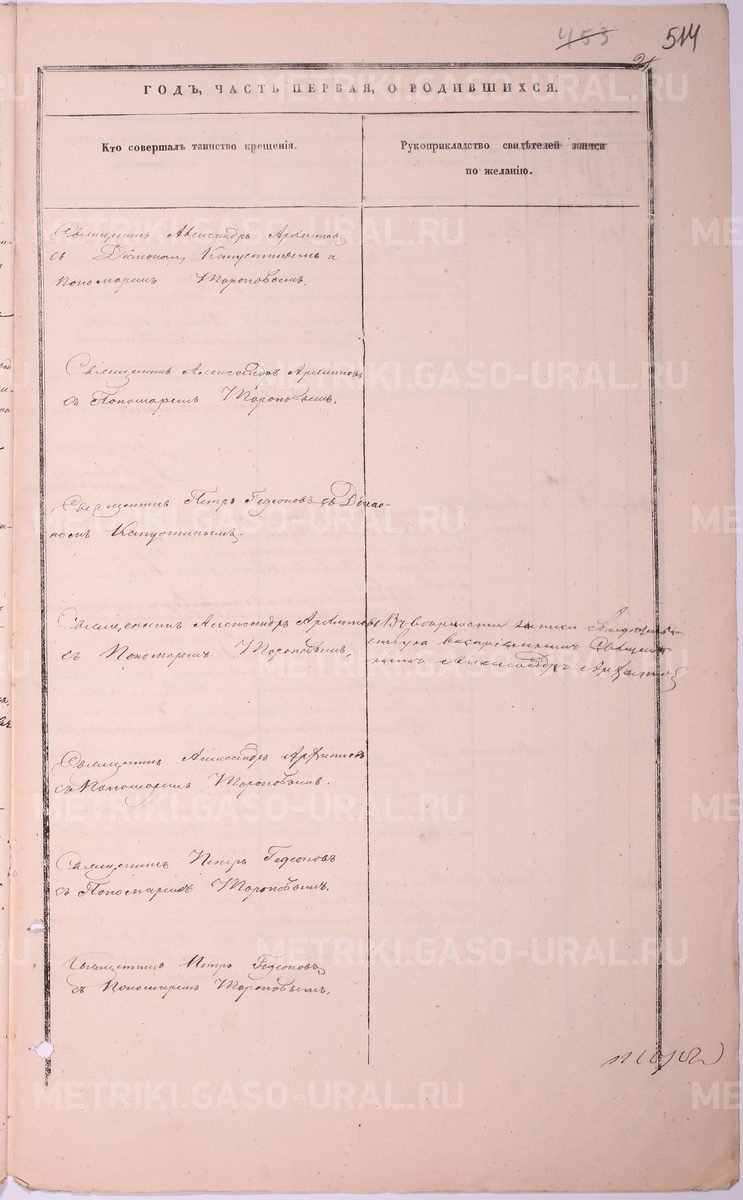 453 514
21
ГОДЪ, ЧАСТЬ ПЕРВАЯ, О РОДИВШИХСЯ.
Кто совершалъ таинство крещенія.
Рукоприкладство свидѣтелей записи
по желанію.
Священникъ Александръ Архиповъ
съ Діакономъ Капустинымъ и
Пономаремъ Тороповымъ.
Священникъ Александръ Архиповъ
съ Пономаремъ Тороповымъ.
Священникъ Петръ Гедеоновъ съ Діако-
номъ Капустинымъ.
Священникъ Александръ Архиповъ
съ Пономаремъ Тороповымъ.
записи
Священ-
никъ Александръ Архиповъ
Священникъ Александръ Архиповъ
съ Пономаремъ Тороповымъ.
Священникъ Петръ Гедеоновъ
съ Пономаремъ Тороповымъ.
Священникъ Петръ Гедеоновъ
съ Пономаремъ Тороповымъ.
METRIKI.GASO-URAL.RU